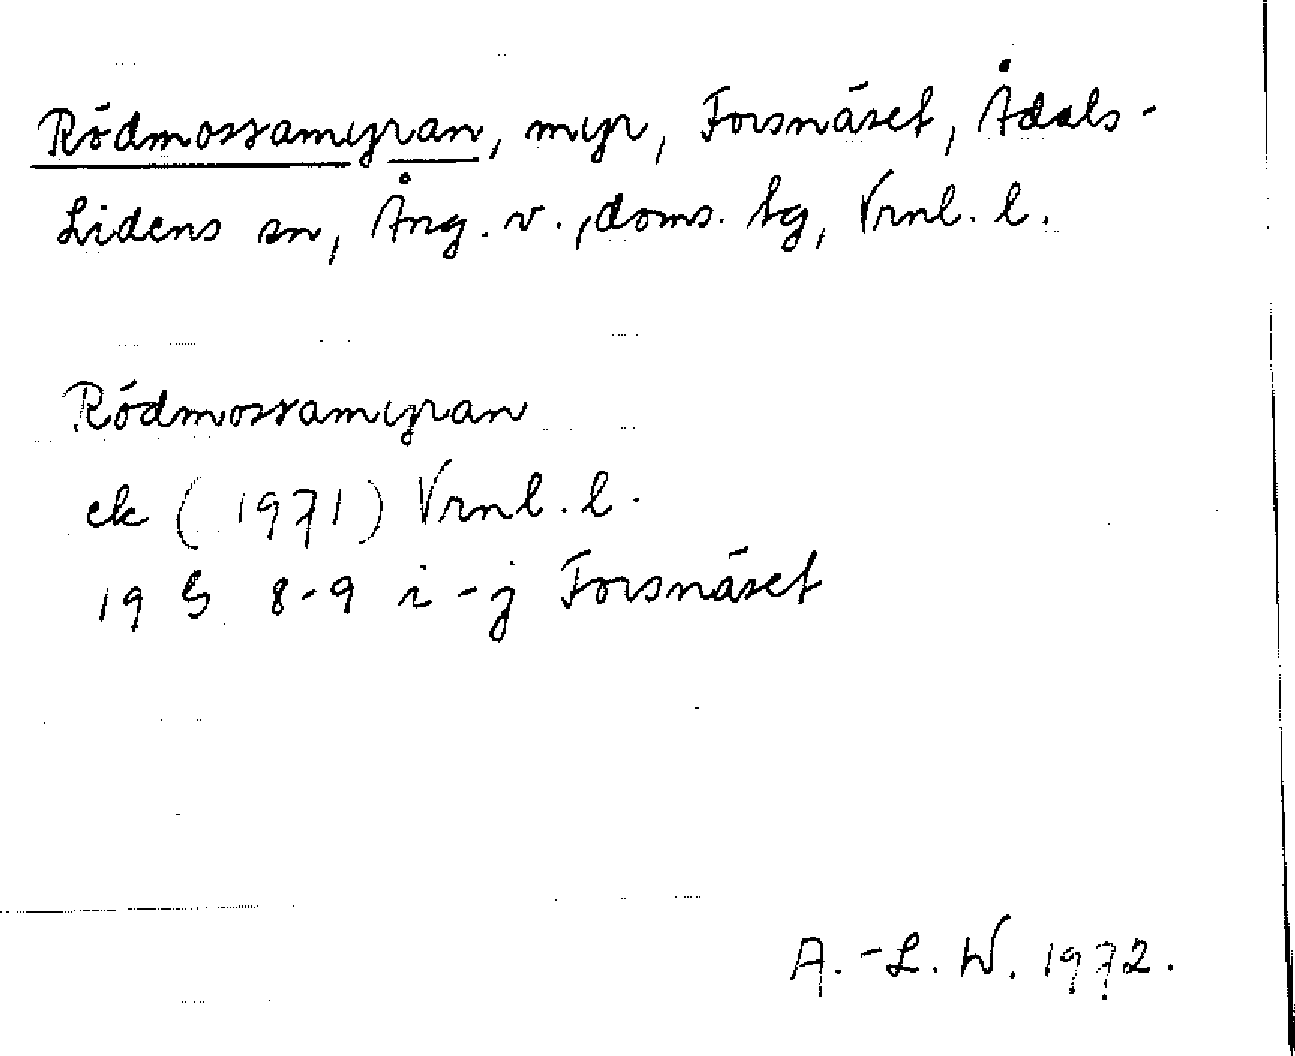 Rödmossamyran, myr, Forsnäset, Ådals-
Lidens sn, Ång. v., doms. tg, Vrnl. l.
Rödmossamyran
ek (1971) Vrnl. l.
19 G 8-9 i-j Forsnäset
A.-L. W. 1972.